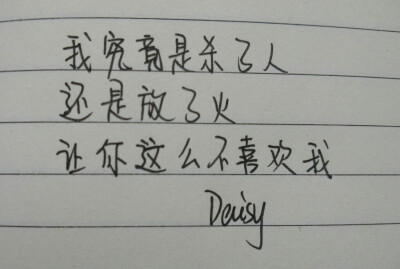 我究竟是杀了人
还是放了火
让你这么不喜欢我
Daisy